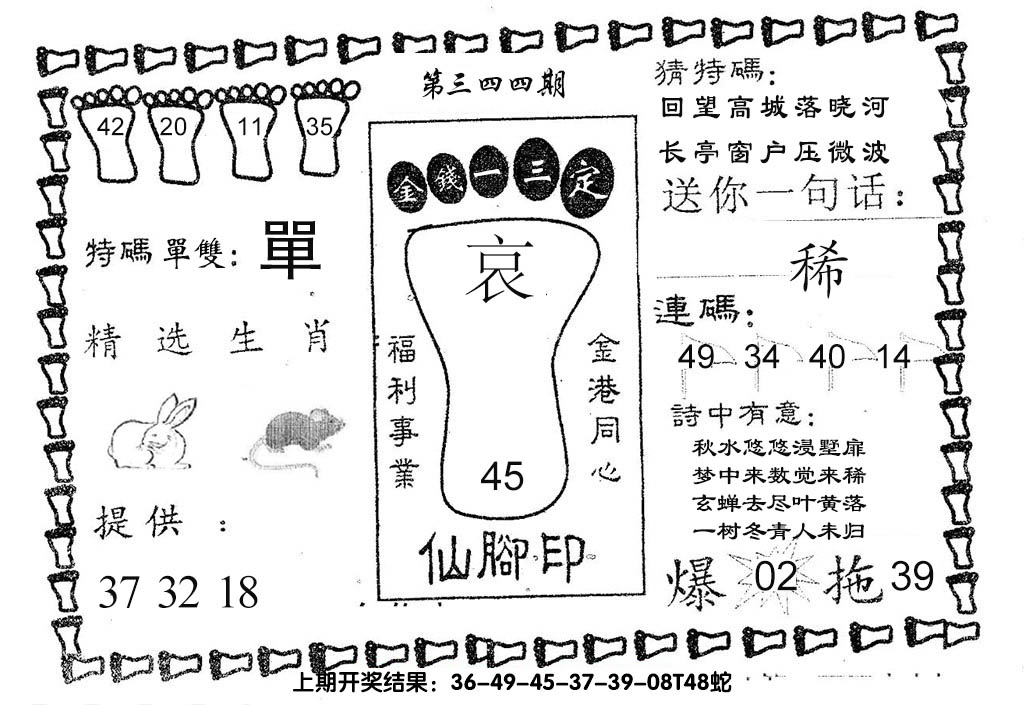 第三四四期
42 20 11 35
特碼單雙：單
精选生肖
提供：
37 32 18
金錢一三定
哀
福利事業
金港同心
45
仙腳印
猜特碼：
回望高城落晓河
长亭窗户压微波
送你一句话：
稀
連碼：
49 34 40 14
詩中有意：
秋水悠悠浸墅扉
梦中来数觉来稀
玄蝉去尽叶黄落
一树冬青人未归
爆 02 拖 39
上期开奖结果：36-49-45-37-39-08T48蛇